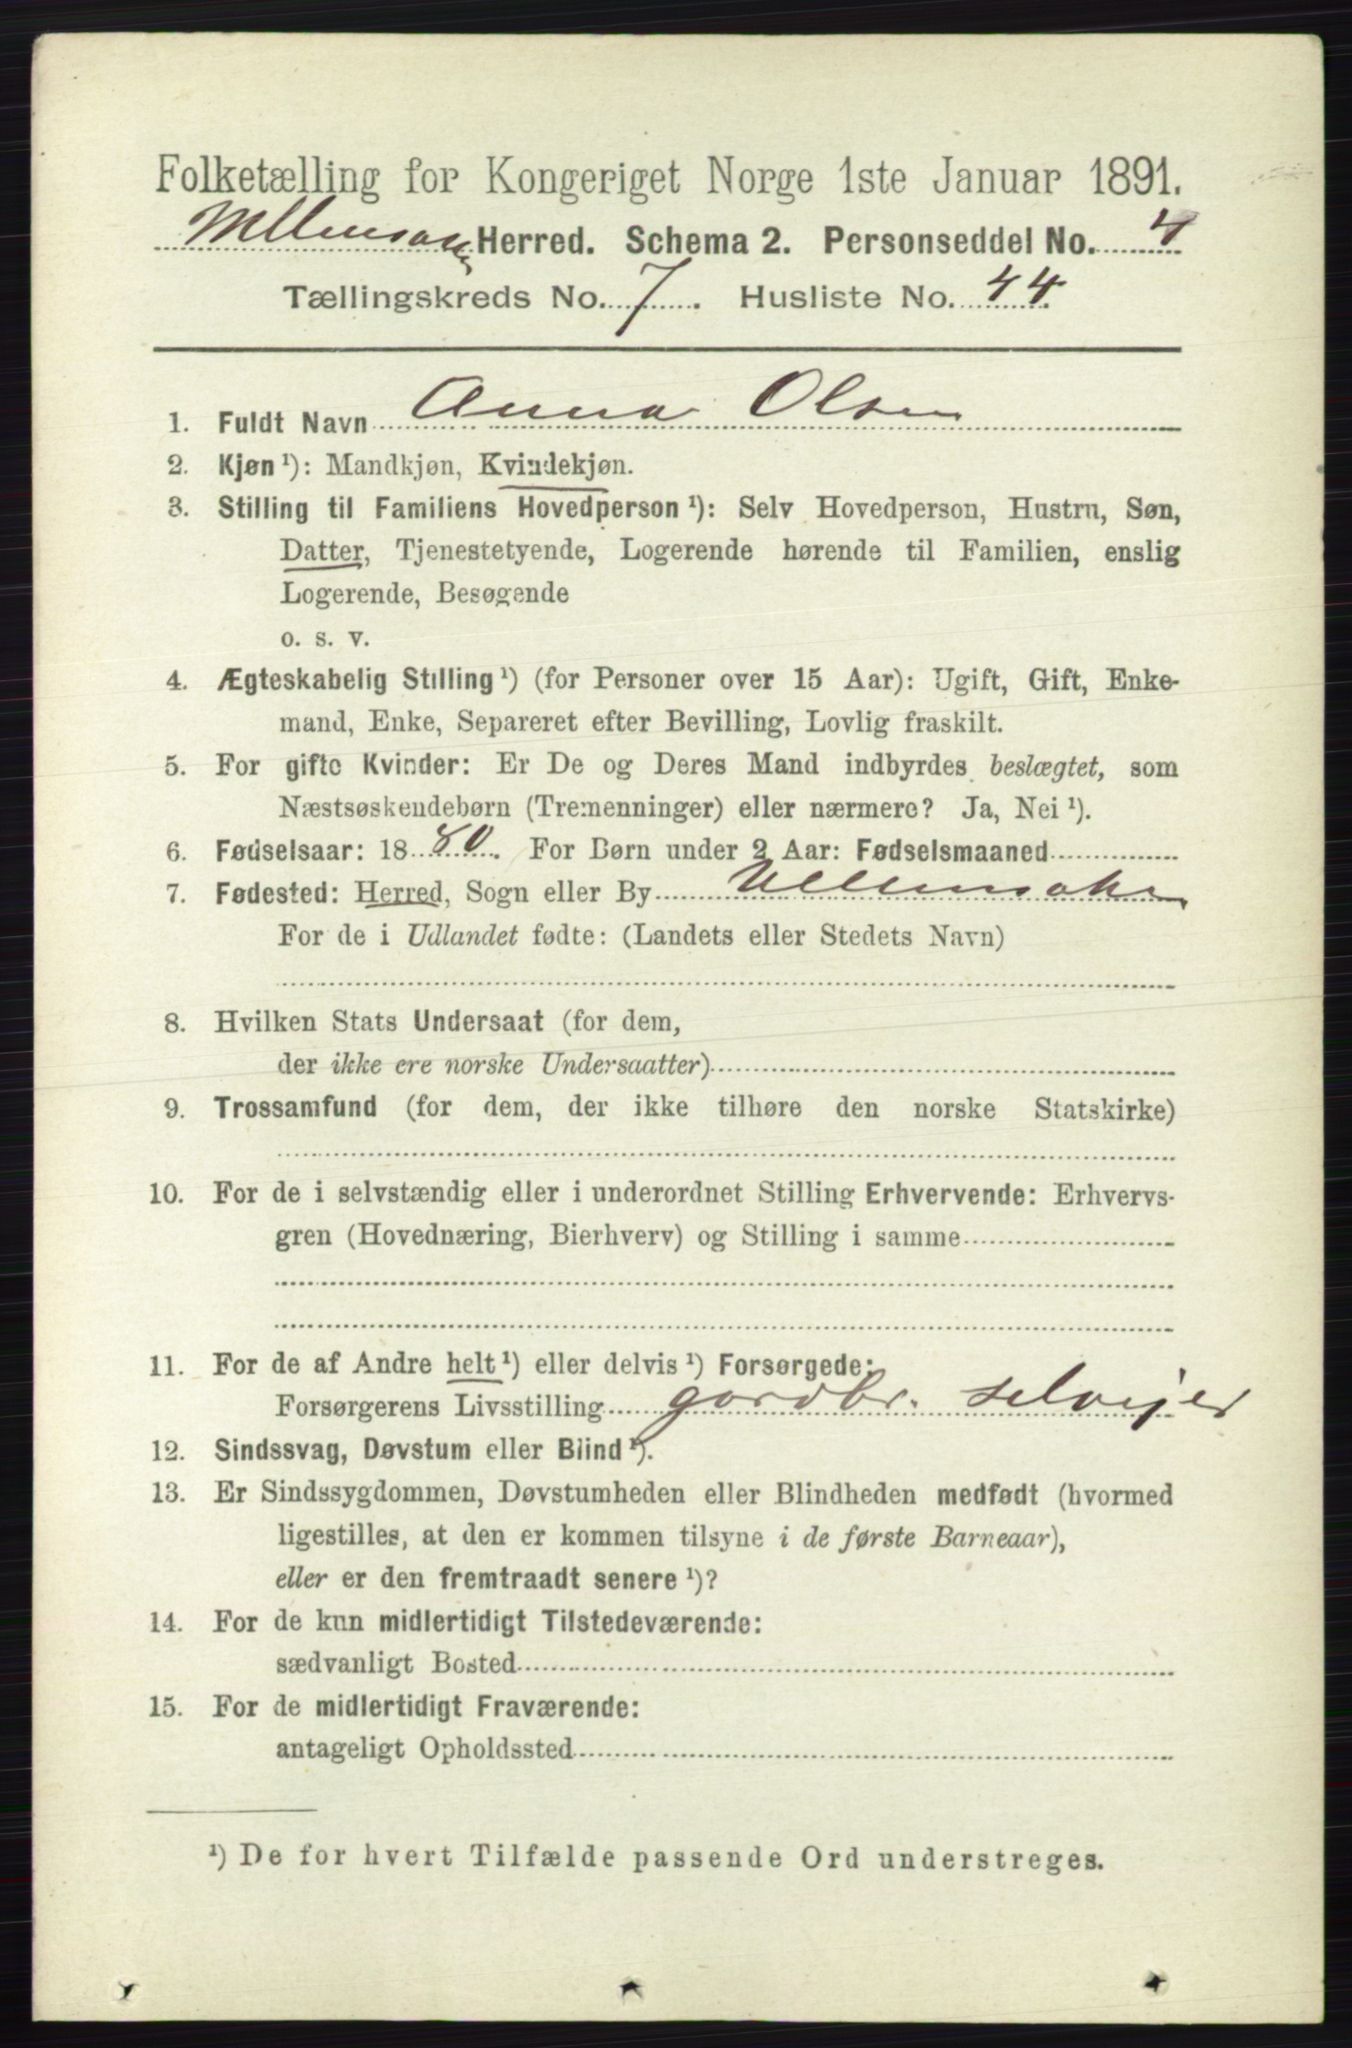 Folketælling for Kongeriget Norge 1ste Januar 1891.
Ullensaker Herred. Schema 2. Personseddel No. 4
Tællingskreds No. 7. Husliste No. 44
1. Fuldt Navn Anna Olsen
2. Kjøn ¹): Mandkjøn, Kvindekjøn.
3. Stilling til Familiens Hovedperson ¹): Selv Hovedperson, Hustru, Søn,
Datter, Tjenestetyende, Logerende hørende til Familien, enslig
Logerende, Besøgende
o. s. v.
4. Ægteskabelig Stilling ¹) (for Personer over 15 Aar): Ugift, Gift, Enke-
mand, Enke, Separeret efter Bevilling, Lovlig fraskilt.
5. For gifte Kvinder: Er De og Deres Mand indbyrdes beslægtet, som
Næstsøskendebørn (Tremenninger) eller nærmere? Ja, Nei ¹).
6. Fødselsaar: 1880. For Børn under 2 Aar: Fødselsmaaned
7. Fødested: Herred, Sogn eller By Ullensaker
For de i Udlandet fødte: (Landets eller Stedets Navn)
8. Hvilken Stats Undersaat (for dem,
der ikke ere norske Undersaatter)
9. Trossamfund (for dem, der ikke tilhøre den norske Statskirke)
10. For de i selvstændig eller i underordnet Stilling Erhvervende: Erhvervs-
gren (Hovednæring, Bierhverv) og Stilling i samme
11. For de af Andre helt ¹) eller delvis ¹) Forsørgede:
Forsørgerens Livsstilling gardbr. selvejer
12. Sindssvag, Døvstum eller Blind ¹).
13. Er Sindssygdommen, Døvstumheden eller Blindheden medfødt (hvormed
ligestilles, at den er kommen tilsyne i de første Barneaar),
eller er den fremtraadt senere ¹)?
14. For de kun midlertidigt Tilstedeværende:
sædvanligt Bosted
15. For de midlertidigt Fraværende:
antageligt Opholdssted
¹) De for hvert Tilfælde passende Ord understreges.